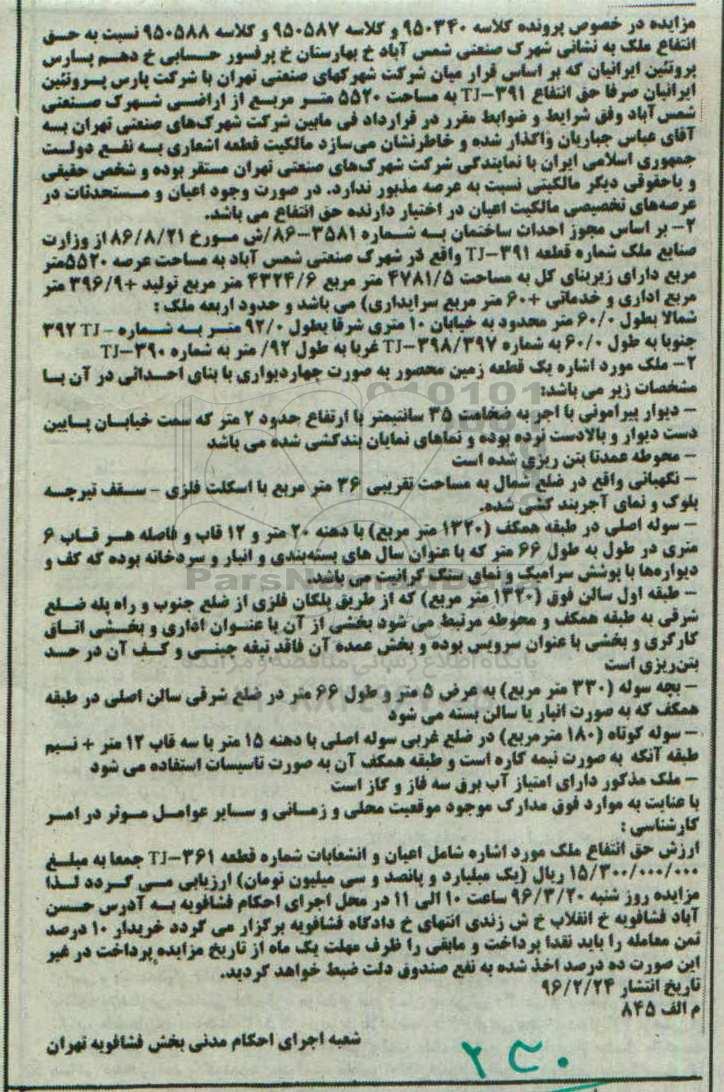 مزایده در خصوص پرونده کلاسه ۹۵۰۳۴۰ و کلاسه ۹۵۰۵۸۷ و کلاسه ۹۵۰۵۸۸ نسبت به حق
انتفاع ملک به نشانی شهرک صنعتی شمس آباد خ بهارستان خ پرفسور حسابی خ دهم پارس
پروتئین ایرانیان که بر اساس قرار میان شرکت شهرکهای صنعتی تهران با شرکت پارس پروتئین
ایرانیان صرفا حق انتفاع TJ-۳۹۱ به مساحت ۵۵۲۰ متر مربع از اراضی شهرک صنعتی
شمس آباد وفق شرایط و ضوابط مقرر در قرارداد فی مابین شرکت شهرک‌های صنعتی تهران به
آقای عباس جباریان واگذار شده و خاطرنشان می‌سازد مالکیت قطعه اشعاری به نفع دولت
جمهوری اسلامی ایران با نمایندگی شرکت شهرک‌های صنعتی تهران مستقر بوده و شخص حقیقی
و یاحقوقی دیگر مالکیتی نسبت به عرصه مذبور ندارد. در صورت وجود اعیان و مستحدثات در
عرصه‌های تخصیصی مالکیت اعیان در اختیار دارنده حق انتفاع می باشد.
۲- بر اساس مجوز احداث ساختمان به شماره ۳۵۸۱-۸۶/ش مورخ ۸۶/۸/۲۱ از وزارت
صنایع ملک شماره قطعه TJ-۳۹۱ واقع در شهرک صنعتی شمس آباد به مساحت عرصه ۵۵۲۰متر
مربع دارای زیربنای کل به مساحت ۴۷۸۱/۵ متر مربع ۴۳۲۴/۶ متر مربع تولید +۳۹۶/۹ متر
مربع اداری و خدماتی +۶۰ متر مربع سرایداری) می باشد و حدود اربعه ملک :
شمالا بطول ۶۰/۰ متر محدود به خیابان ۱۰ متری شرقا بطول ۹۲/۰ متر به شماره - TJ ۳۹۲
جنوبا به طول ۶۰/۰ به شماره ۳۹۸/۳۹۷-TJ غربا به طول ۹۲/ متر به شماره ۳۹۰-TJ
۲- ملک مورد اشاره یک قطعه زمین محصور به صورت چهاردیواری با بنای احداثی در آن با
مشخصات زیر می باشد:
- دیوار پیرامونی با اجر به ضخامت ۳۵ سانتیمتر با ارتفاع حدود ۲ متر که سمت خیابان پایین
دست دیوار و بالادست نرده بوده و نماهای نمایان بندکشی شده می باشد
- محوطه عمدتا بتن ریزی شده است
- نگهبانی واقع در ضلع شمال به مساحت تقریبی ۳۶ متر مربع با اسکلت فلزی - سقف تیرچه
بلوک و نمای آجربند کشی شده.
- سوله اصلی در طبقه همکف (۱۳۲۰ متر مربع) با دهنه ۲۰ متر و ۱۲ قاب و فاصله هر قاب ۶
متری در طول به طول ۶۶ متر که با عنوان سال های بسته‌بندی و انبار و سردخانه بوده که کف و
دیواره‌ها با پوشش سرامیک و نمای سنگ گرانیت می باشد.
- طبقه اول سالن فوق (۱۳۲۰ متر مربع) که از طریق پلکان فلزی از ضلع جنوب و راه پله ضلع
شرقی به طبقه همکف و محوطه مرتبط می شود بخشی از آن با عنوان اداری و بخشی اتاق
کارگری و بخشی با عنوان سرویس بوده و بخش عمده آن فاقد تیغه چینی و کف آن در حد
بتن‌ریزی است
- بچه سوله (۳۳۰ متر مربع) به عرض ۵ متر و طول ۶۶ متر در ضلع شرقی سالن اصلی در طبقه
همکف که به صورت انبار با سالن بسته می شود
- سوله کوتاه (۱۸۰ مترمربع) در ضلع غربی سوله اصلی با دهنه ۱۵ متر با سه قاب ۱۲ متر + نیم
طبقه آنکه به صورت نیمه کاره است و طبقه همکف آن به صورت تاسیسات استفاده می شود
- ملک مذکور دارای امتیاز آب برق سه فاز و گاز است
با عنایت به موارد فوق مدارک موجود موقعیت محلی و زمانی و سایر عوامل موثر در امر
کارشناسی :
ارزش حق انتفاع ملک مورد اشاره شامل اعیان و انشعابات شماره قطعه ۳۶۱-TJ جمعا به مبلغ
۱۵/۳۰۰/۰۰۰/۰۰۰ ریال (یک میلیارد و پانصد و سی میلیون تومان) ارزیابی می گردد لذا
مزایده روز شنبه ۹۶/۳/۲۰ ساعت ۱۰ الی ۱۱ در محل اجرای احکام فشافویه به آدرس حسن
آباد فشافویه خ انقلاب خ ش زندی انتهای خ دادگاه فشافویه برگزار می گردد خریدار ۱۰ درصد
ثمن معامله را باید نقدا پرداخت و مابقی را ظرف مهلت یک ماه از تاریخ مزایده پرداخت در غیر
این صورت ده درصد اخذ شده به نفع صندوق دلت ضبط خواهد گردید.
تاریخ انتشار ۹۶/۲/۲۴
م الف ۸۴۵
شعبه اجرای احکام مدنی بخش فشافویه تهران